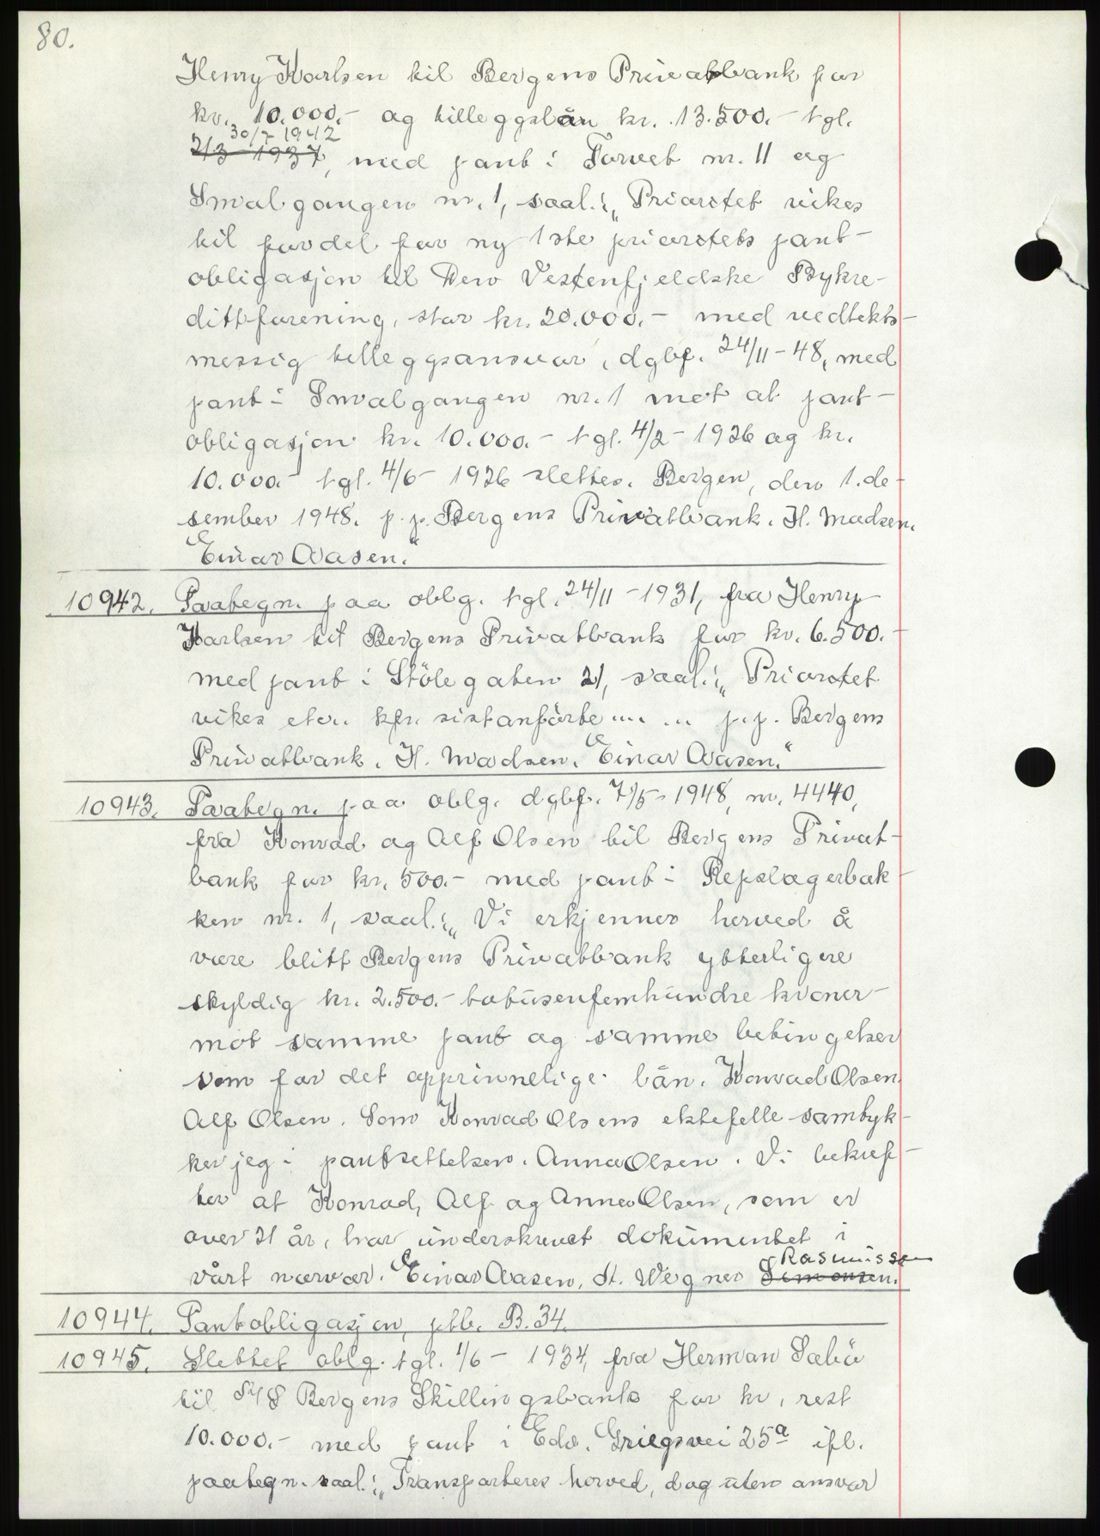 80.
Henry Karlsen til Bergens Privatbank for
kr. 10.000.- og tilleggslån kr. 13.500.- tgl.
30/7 1942
2/3 1937, med pant i Torvet nr. 11 og
Smalgangen nr. 1, saal.: „Prioritet vikes
til fordel for ny 1ste prioritets pant-
obligasjon til Den Vestenfjeldske Bykre-
dittforening, stor kr. 20.000.- med vedtekts-
messig tilleggsansvar, dgbf. 24/11-48, med
pant i Smalgangen nr. 1 mot at pant-
obligasjon kr. 10.000.- tgl. 4/2-1926 og kr.
10.000.- tgl. 4/6-1926 slettes. Bergen, den 1. de-
sember 1948. p.p. Bergens Privatbank. H. Madsen.
Einar Aasen."
10942. Paategn. paa oblg. tgl. 24/11-1931, fra Henry
Karlsen til Bergens Privatbank for kr. 6.500.-
med pant i Stölegaten 21, saal.: „Prioritet
vikes etc. kfr. sistanförte ... ... p.p. Bergens
Privatbank. H. Madsen. Einar Aasen."
10943. Paategn. paa oblg. dgbf. 7/5-1948, nr. 4440,
fra Konrad og Alf Olsen til Bergens Privat-
bank for kr. 500.- med pant i Repslagerbak-
ken nr. 1, saal.: „Vi erkjenner herved å
være blitt Bergens Privatbank ytterligere
skyldig kr. 2.500.- totusenfemhundre kroner-
mot samme pant og samme betingelser
som for det opprinnelige lån. Konrad Olsen.
Alf Olsen. Som Konrad Olsens ektefelle samtyk-
ker jeg i pantsettelsen. Anna Olsen. Vi bekref-
ter at Konrad, Alf og Anna Olsen, som er
over 21 år, har underskrevet dokumentet i
vårt nærvær. Einar Aasen. St. Wegner Simonsen.
Rasmussen
10944. Pantobligasjon, ptb. B. 34.
10945. Slettet oblg. tgl. 1/6-1934, fra Herman Sabö
til A/S Bergens Skillingsbank for kr. rest
10.000.- med pant i Edv. Griegsvei 25a ifl.
paategn. saal.: „Transporteres herved, dog uten ansvar